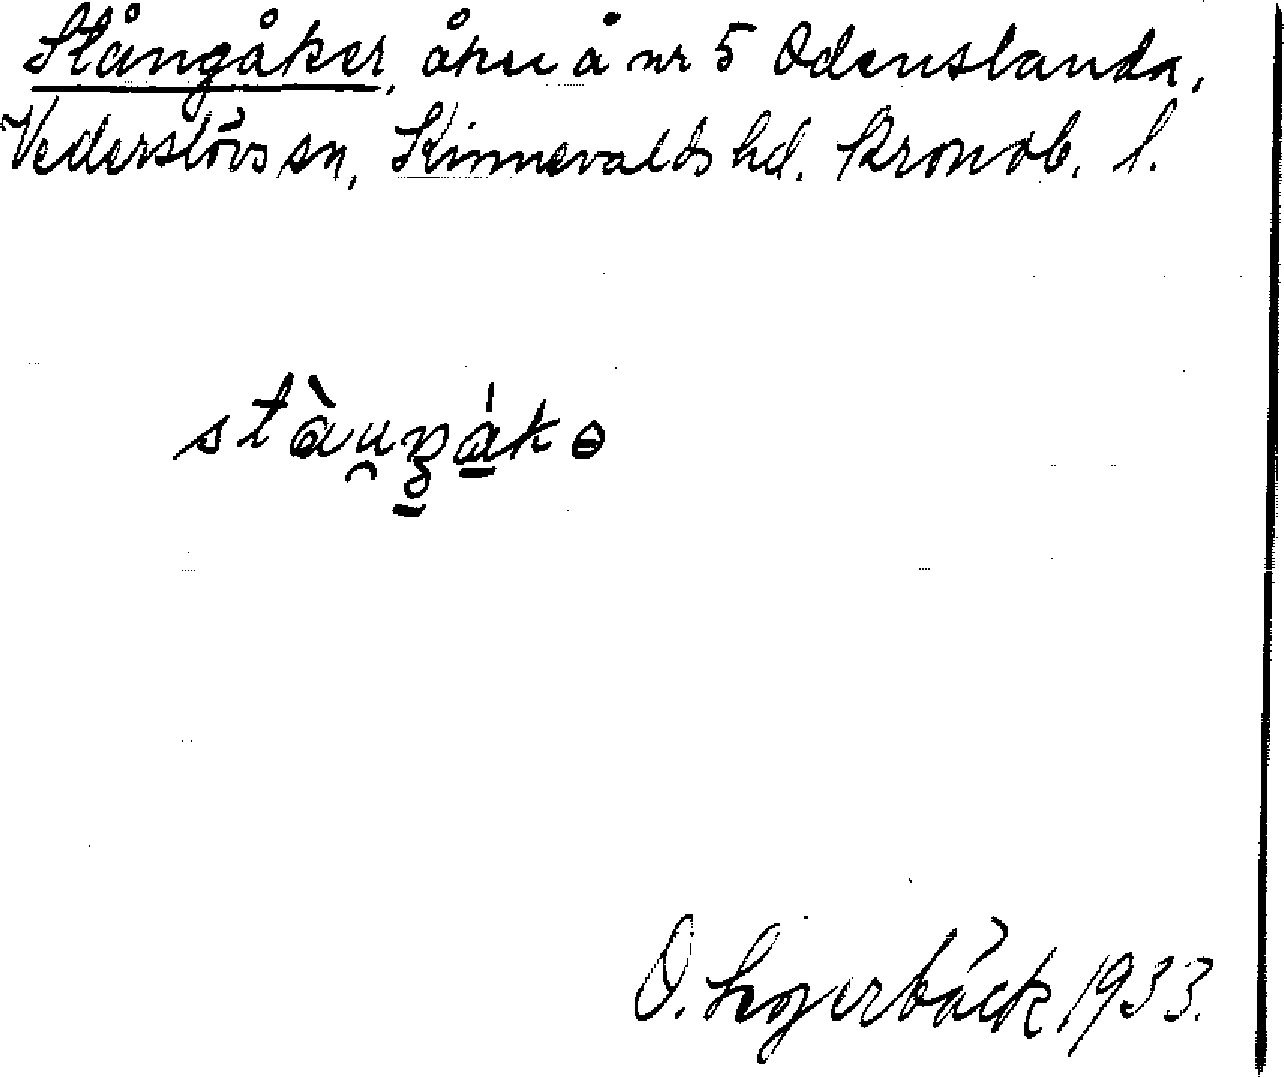 Stångåker, åker å nr 5 Odenslanda,
Vederslövs sn, Kinnevalds hd. Kronob. l.
O. Lojerbäck 1933.